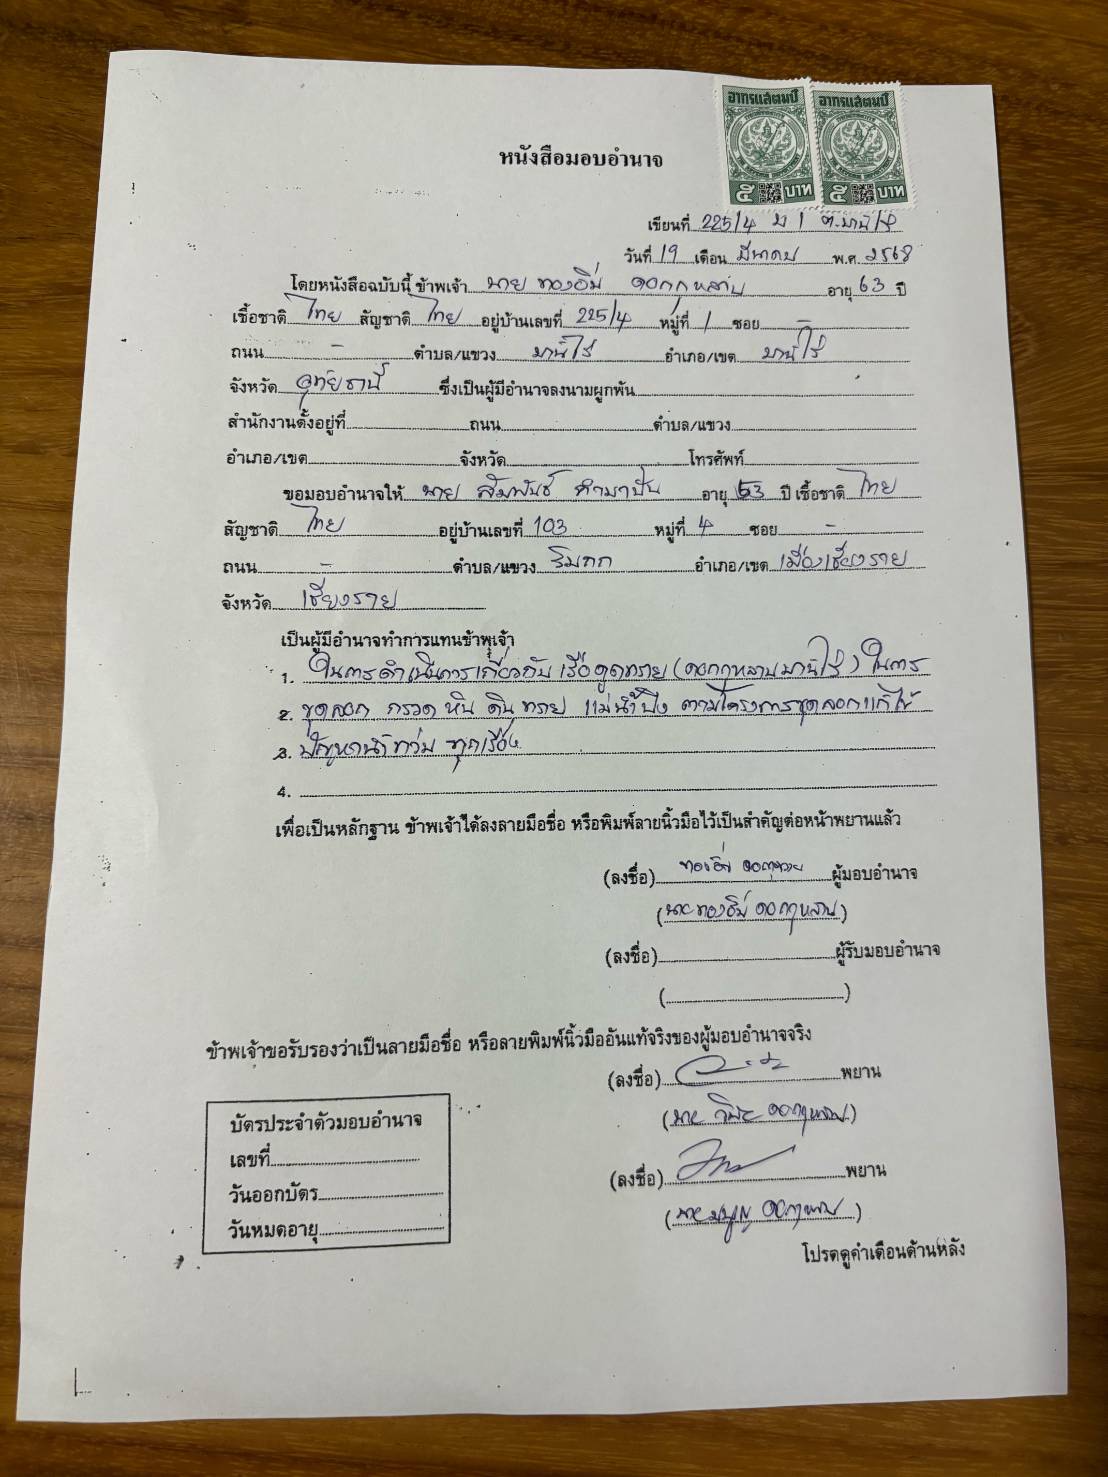 อากรแสตมป์ อากรแสตมป์
๕ บาท ๕ บาท
หนังสือมอบอำนาจ
เขียนที่ 225/4 ม 1 ต.
วันที่ 19 เดือน มีนาคม พ.ศ. 2568
โดยหนังสือฉบับนี้ ข้าพเจ้า นาย ทองอิ่ม ดอกกุหลาบ อายุ 63 ปี
เชื้อชาติ ไทย สัญชาติ ไทย อยู่บ้านเลขที่ 225/4 หมู่ที่ 1 ซอย -
ถนน - ตำบล/แขวง อำเภอ/เขต
จังหวัด อุทัยธานี ซึ่งเป็นผู้มีอำนาจลงนามผูกพัน
สำนักงานตั้งอยู่ที่ ถนน ตำบล/แขวง
อำเภอ/เขต จังหวัด โทรศัพท์
ขอมอบอำนาจให้ นาย สัมพันธ์ อายุ 53 ปี เชื้อชาติ ไทย
สัญชาติ ไทย อยู่บ้านเลขที่ 103 หมู่ที่ 4 ซอย -
ถนน - ตำบล/แขวง ริมกก อำเภอ/เขต เมืองเชียงราย
จังหวัด เชียงราย
เป็นผู้มีอำนาจทำการแทนข้าพเจ้า
1. ในการดำเนินการเกี่ยวกับ เรือดูดทราย (ดอกกุหลาบ ) ในการ
2. ขุดลอก กรวด หิน ดิน ทราย แม่น้ำปิง ตามโครงการขุดลอกแก้ไข
3. ปัญหาน้ำท่วม ทุกเรื่อง
4.
เพื่อเป็นหลักฐาน ข้าพเจ้าได้ลงลายมือชื่อ หรือพิมพ์ลายนิ้วมือไว้เป็นสำคัญต่อหน้าพยานแล้ว
(ลงชื่อ) ทองอิ่ม ผู้มอบอำนาจ
(นายทองอิ่ม ดอกกุหลาบ)
(ลงชื่อ) ผู้รับมอบอำนาจ
( )
ข้าพเจ้าขอรับรองว่าเป็นลายมือชื่อ หรือลายพิมพ์นิ้วมืออันแท้จริงของผู้มอบอำนาจจริง
(ลงชื่อ) พยาน
(นาย ดอกกุหลาบ)
(ลงชื่อ) พยาน
(นาย ดอกกุหลาบ)
บัตรประจำตัวมอบอำนาจ
เลขที่
วันออกบัตร
วันหมดอายุ
โปรดดูคำเตือนด้านหลัง